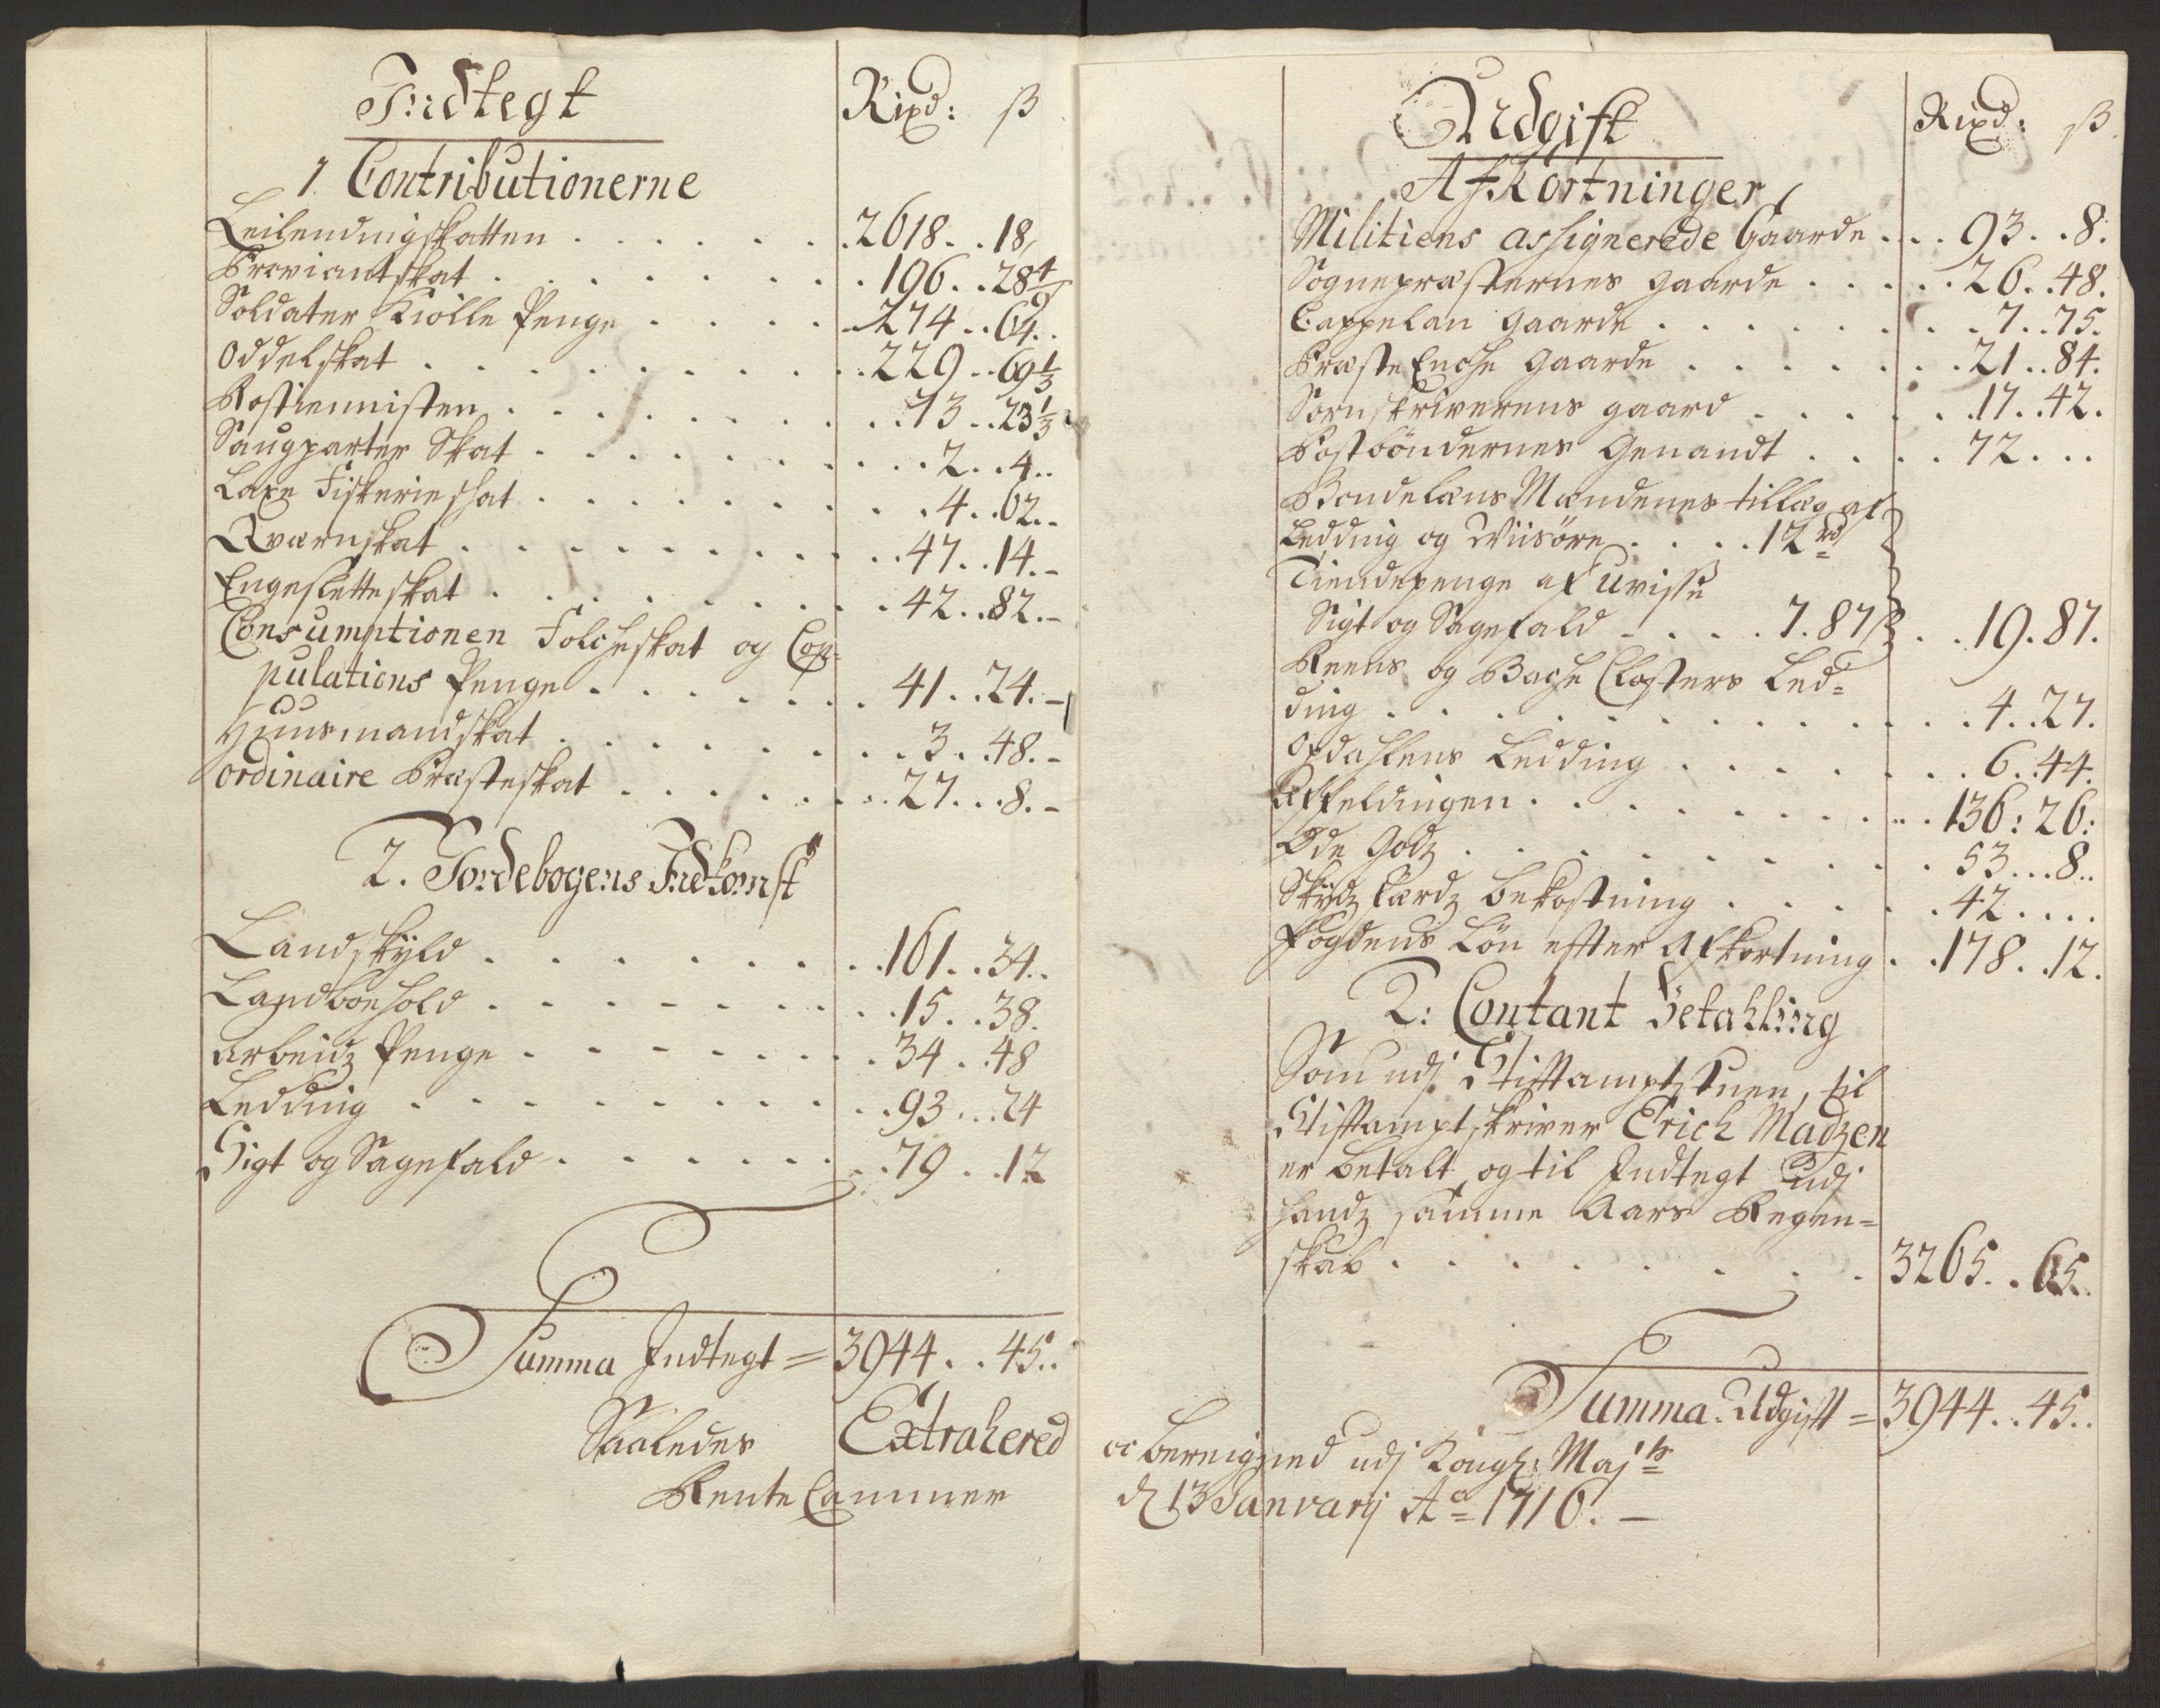 Indtegt
Rixd: ß
1. Contributionerne
Leilendingskatten . . . . . . 2618 . . 18,
Proviantskat . . . . . . . 196 . . 28 4/9
Soldater Kiolle Penge . . . . 274 . . 64 . .
Oddelskat . . . . . . . . 229 . . 69 1/3
Rostiennisten . . . . . . . 73 . . 23 1/3
Saugparter Skat . . . . . . . 2 . . 4 . .
Laxe Fiskerie skat . . . . . . 4 . . 62 . .
Qvernskat . . . . . . . . 47 . . 14. -
Engesletteskat . . . . . . . 42 . . 82. -
Consumptionen Folcheskat og Cop-
pulations Penge . . . . . . 41 . . 24. -
Huusmandskat . . . . . . . 3 . . 48. -
ordinaire Præsteskat . . . . . . 27 . . . 8. -
2. Jordebogens Indkomst
Landskÿld . . . . . . . 161 . . 34 . .
Landboehold . . . . . . . 15 . . 38.
Arbeidz Penge . . . . . . . 34 . . 48
Ledding . . . . . . . . 93 . . . 24
Sigt og Sagefald . . . . . . 79 . . 12
Summa Indtegt = 3944 . . 45 . .
Saaledes Extrahered
Rente Cammer
Udgift
Rixd: ß
Af Kortninger
Militiens assignerede Gaarde . . . 93 . . 8.
Sognepræsternes gaarde . . . . . 26 . . 48.
Cappelan gaarde . . . . . . . 7 . . 75.
Præste Enche gaarde . . . . . . 21 . . 84.
Sornskriverens gaard . . . . . . 17 . . 42.
Postböndernes Genandt . . . . 72 . . .
Bondelæns Mændenes tillæg af
Ledding og Wiisöre . . . . 12 rd
Tiendepenge af Uvisse
Sigt og Sagefald - . . . 7. 87 ß . . 19. 87.
Reens og Bache Closters Led=
ding . . . . . . . . . . 4 . . 27.
Opdahlens Ledding . . . . . . 6 . . 44.
Affeldingen . . . . . . . . 136: 26:
Öde Godz . . . . . . . . 53 . . . 8 . .
Skÿdz færdz bekostning . . . . . 42 . . . .
Fogdens Lön efter Afkortning . . 178 . . 12.
2: Contant Betahling
Som udj Stiftamptstuen, til
Stiftamptskriver Erich Madzen
er betalt, og til Indtegt udj
handz samme Aars Regen=
skab . . . . . . . . . 3265 . . 65 . .
Summa Udgift = 3944 . . 45 . .
oc bereigned udj Kongl: Maj ts
d 13 Janvarij Ao = 1716. -